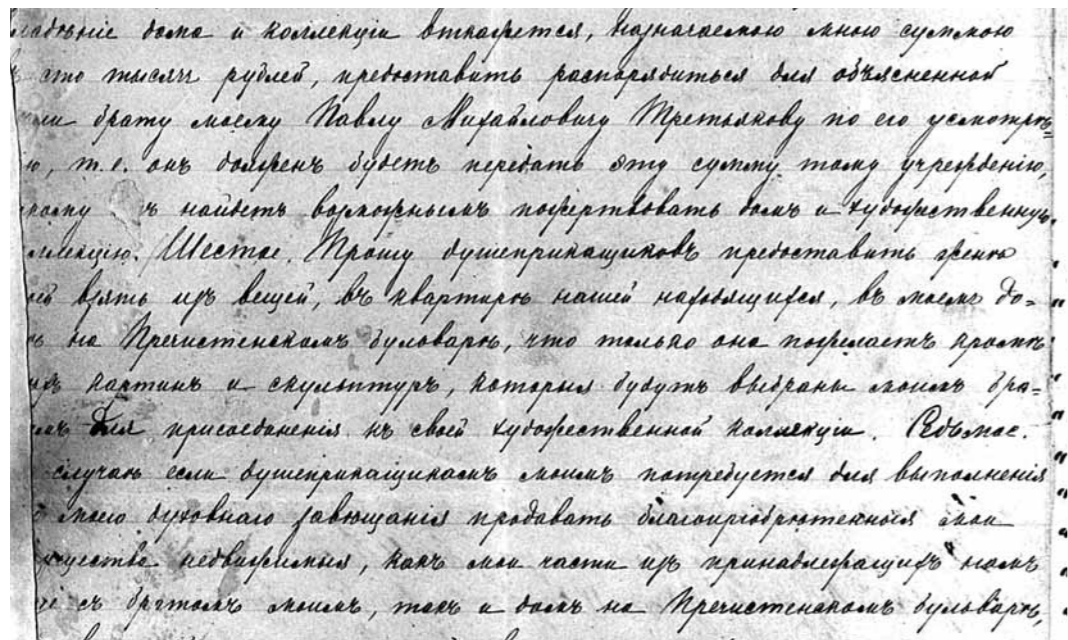 владѣніе дома и коллекціи откажется, назначаемою мною суммою
сто тысячъ рублей, предоставить распорядиться для объясненной
брату моему Павлу Михайловичу Третьякову по его усмотрѣ
ю, т.е. онъ долженъ будетъ передать эту сумму тому учрежденію,
найдетъ возможнымъ пожертвовать домъ и художественную
ллекцію. Шестое. Прошу душеприкащиковъ предоставить женѣ
ей взять изъ вещей, въ квартирѣ нашей находящихся, въ моемъ до=
ѣ на Пречистенскомъ бульварѣ, что только она пожелаетъ кромѣ
картинъ и скульптуръ, которыя будутъ выбраны моимъ бра=
для присоединенія къ своей художественной коллекціи. Седьмое.
случаѣ если душеприкащикамъ моимъ потребуется для выполненія
моего духовнаго завѣщанія продавать благопріобрѣтенныя мои
ущества недвижимыя, какъ мои части изъ принадлежащихъ намъ
съ братомъ моимъ, такъ и домъ на Пречистенскомъ бульварѣ,